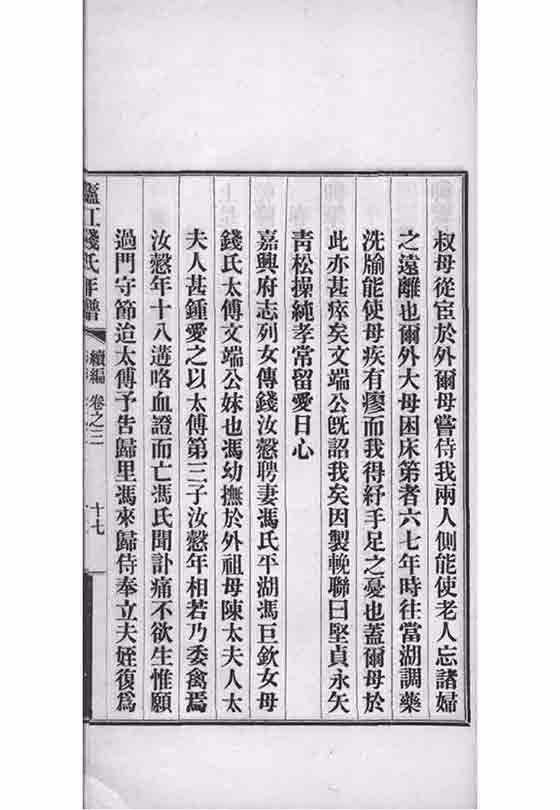 叔母從宦於外爾母嘗侍我兩人側能使老人忘諸婦
之遠離也爾外大母困床第者六七年時往當湖調藥
洗牏能使母疾有瘳而我得紓手足之憂也蓋爾母於
此亦甚瘁矣文端公旣詔我矣因製輓聯曰堅貞永矢
靑松操純孝常留愛日心
嘉興府志列女傳錢汝愨聘妻馮氏平湖馮巨欽女母
錢氏太傅文端公妹也馮幼撫於外祖母陳太夫人太
夫人甚鍾愛之以太傅第三子汝愨年相若乃委禽焉
汝愨年十八遘咯血證而亡馮氏聞訃痛不欲生惟願
過門守節迨太傅予告歸里馮來歸侍奉立夫姪復爲
廬江錢氏年譜 續編 卷之三 十七